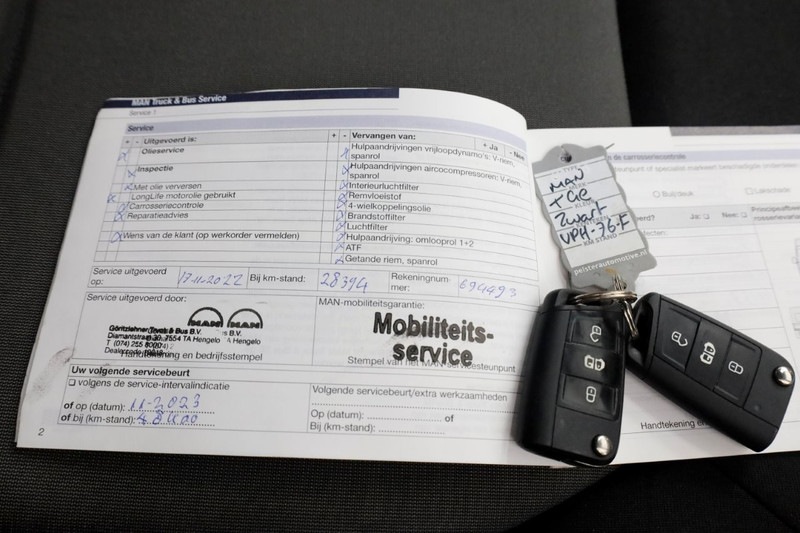 MAN Truck & Bus Service
Service 1
Service
+ - Uitgevoerd is:
Olieservice
Inspectie
Met olie verversen
LongLife motorolie gebruikt
Carrosseriecontrole
Reparatieadvies
Wens van de klant (op werkorder vermelden)
+ - Vervangen van: + Ja - Nee
Hulpaandrijvingen vrijloopdynamo's: V-riem,
spanrol
Hulpaandrijvingen aircocompressoren: V-riem,
spanrol
Interieurluchtfilter
Remvloeistof
4-wielkoppelingsolie
Brandstoffilter
Luchtfilter
Hulpaandrijving: omlooprol 1+2
ATF
Getande riem, spanrol
Service uitgevoerd
op: 17-11-2022
Bij km-stand: 28394
Rekeningnum-
mer: 694493
Service uitgevoerd door:
MAN MAN
Diamantstraat 39, 7554 TA Hengelo
T (074) 255
Handtekening en bedrijfsstempel
MAN-mobiliteitsgarantie:
Mobiliteits-
service
Stempel van het MAN-servicesteunpunt
Uw volgende servicebeurt
volgens de service-intervalindicatie
of op (datum): 11-2023
of bij (km-stand):
Volgende servicebeurt/extra werkzaamheden
Op (datum): of
Bij (km-stand):
2
MAN
TGE
Zwart
VPH-36-F
KM STAND
pelsterautomotive.nl
Buitendeuk
Ja: Nee:
Handtekening en